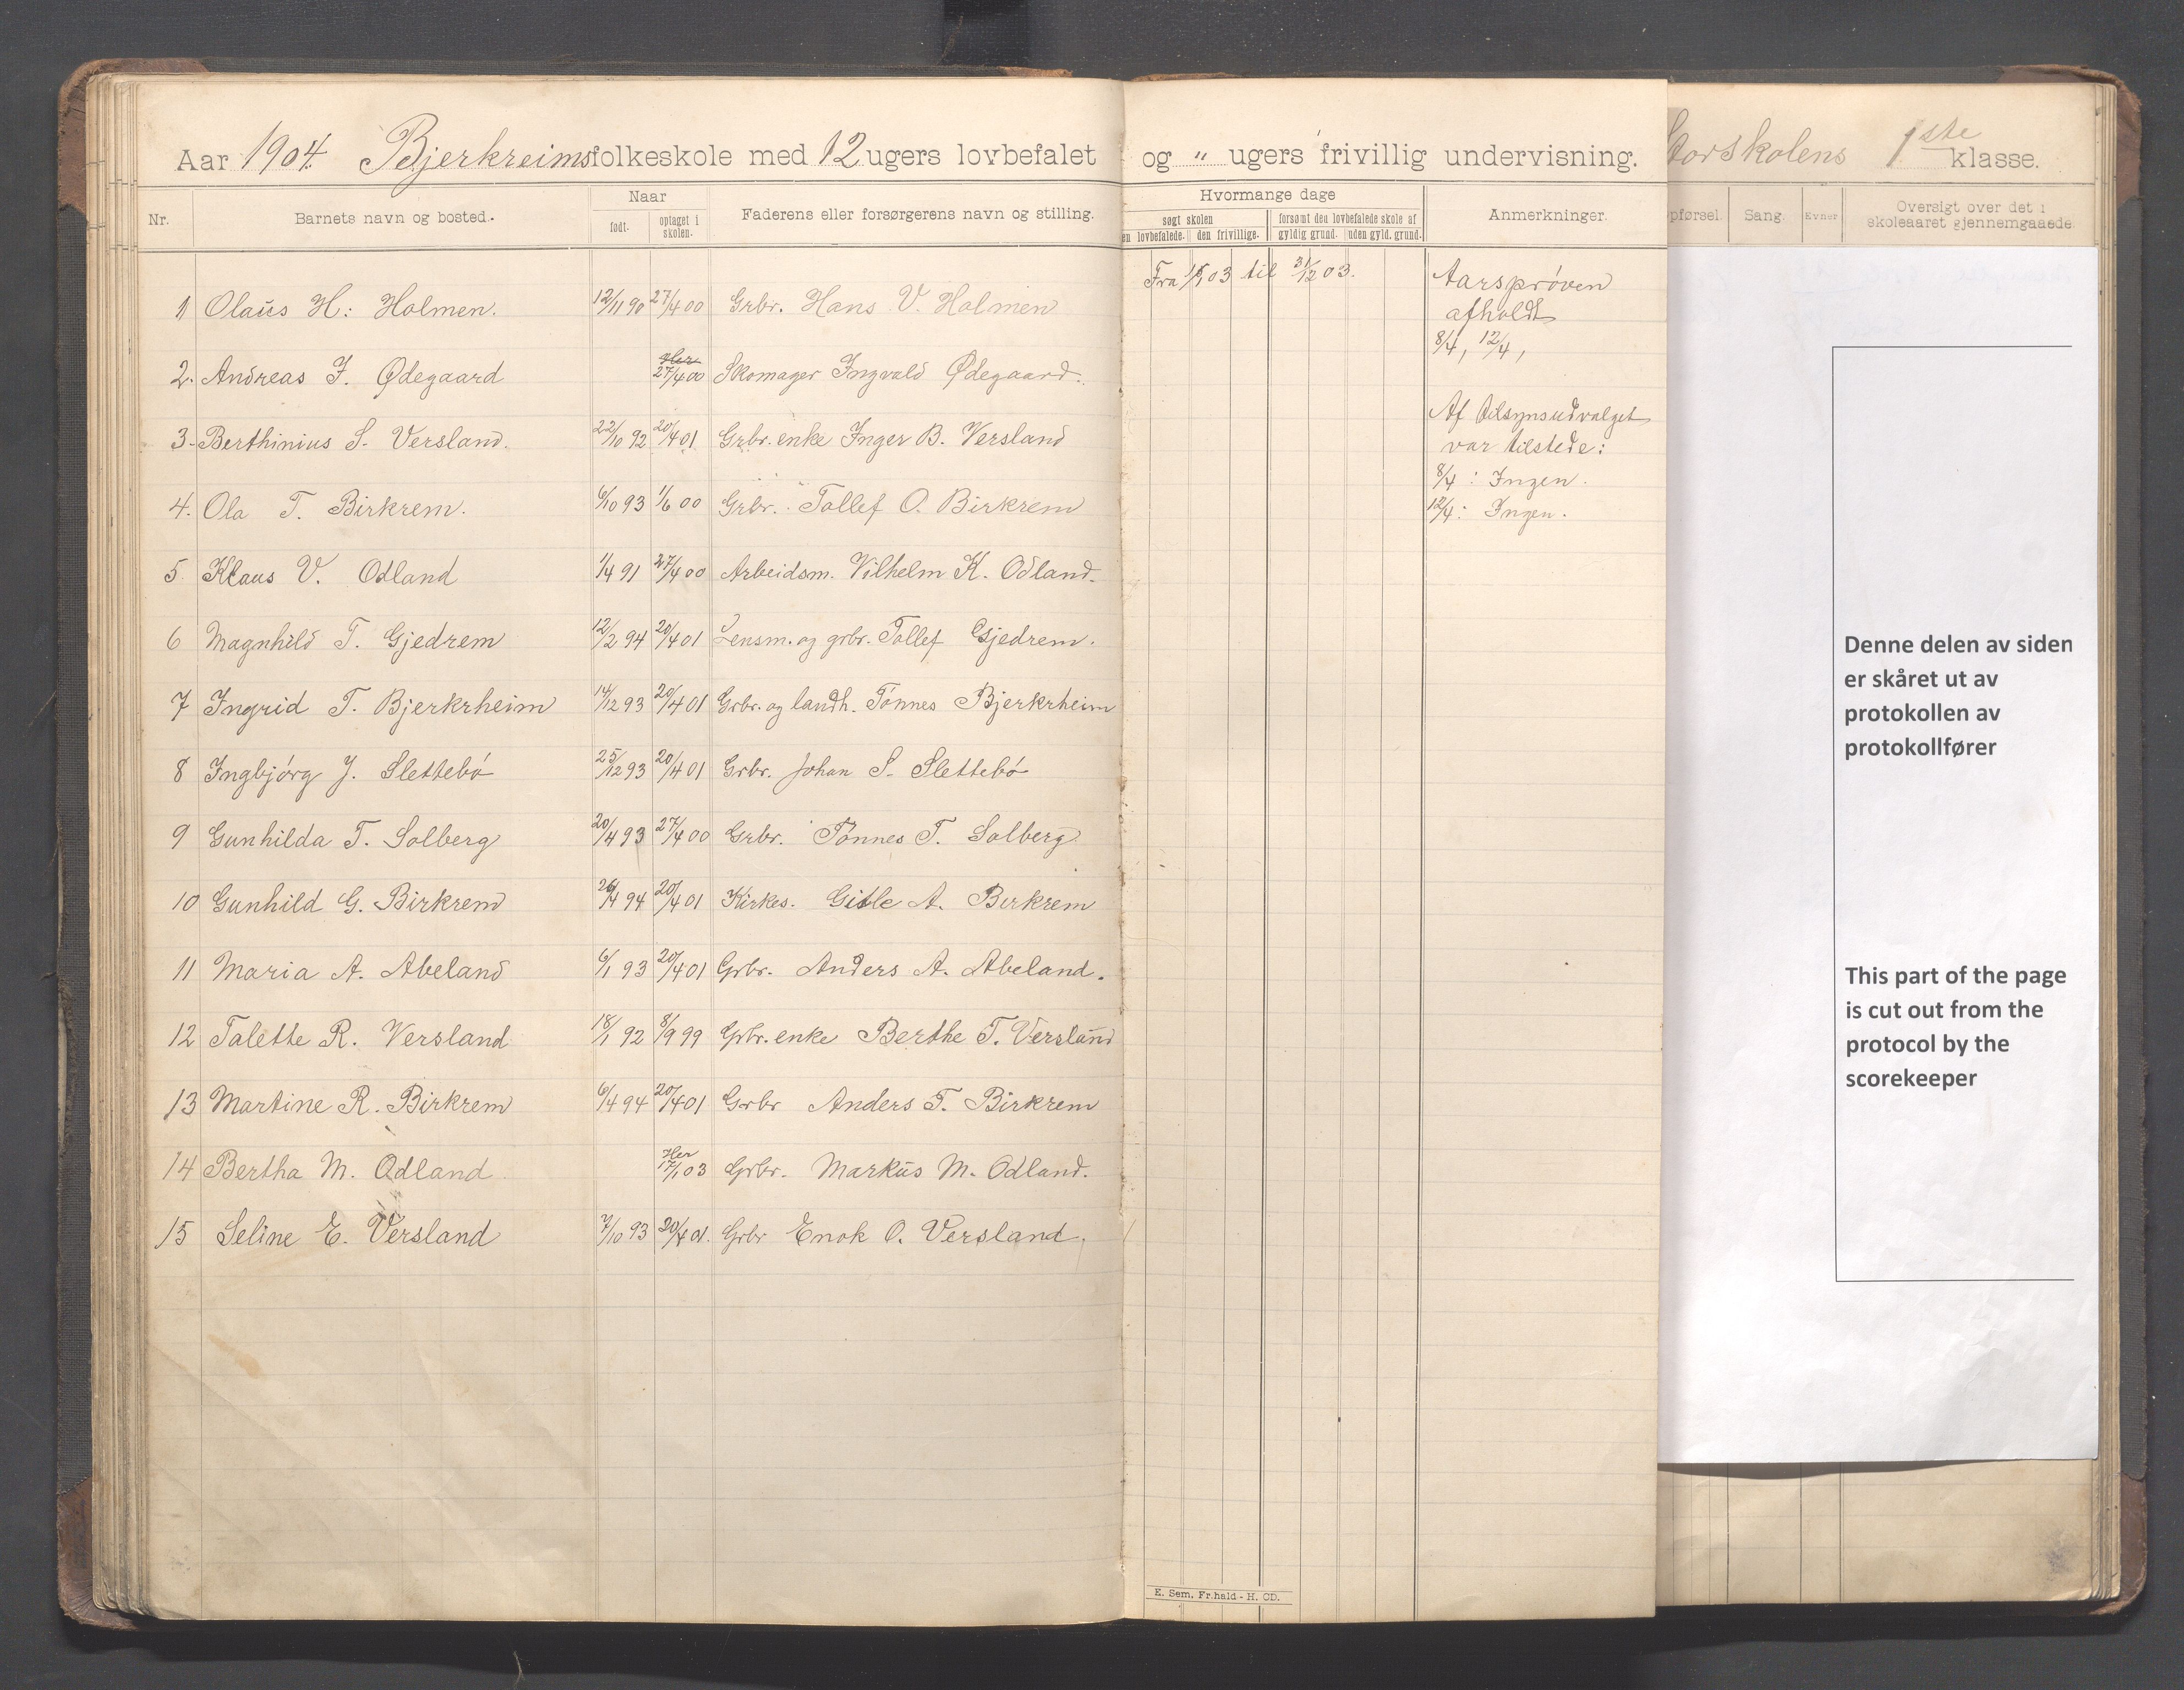 Aar 1904. Bjerkreims folkeskole med 12 ugers lovbefalet og " ugers frivillig undervisning. Storskolens 1ste klasse.
Nr. Barnets navn og bosted. Naar født. optaget i skolen. Faderens eller forsørgerens navn og stilling.
Hvormange dage søgt skolen den frivillige. forsømt den lovbefalede skole af gyldig grund. uden gyld. grund. Anmerkninger.
Sang. Evner Oversigt over det i skoleaaret gjennemgaaede
1 Olaus H: Holmen. 12/11 90 27/4 00 Grbr. Hans V. Holmen
2. Andreas I. Ødegaard 27/4 00 Skomager Ingvald Ødegaard.
3. Berthinius S. Versland. 22/10 92 20/4 01 Grbr. enke Inger B. Versland
4. Ola T. Birkrem. 6/10 93 1/6 00 Grbr. Tollef O. Birkrem
5. Klaus V. Odland 1/4 91 27/4 00 Arbeidsm. Vilhelm K. Odland.
6 Magnhild T. Gjedrem 12/2 94 20/4 01 Lensm. og grbr. Tollef Gjedrem.
7 Ingrid T. Bjerkrheim 14/12 93 20/4 01 Grbr. og landh. Tønnes Bjerkrheim
8 Ingbjørg J. Slettebø 25/12 93 20/4 01 Grbr. Johan S. Slettebø
9 Gunhilda T. Solberg 20/4 93 27/4 00 Grbr. Tønnes T. Solberg
10 Gunhild G. Birkrem 94 20/4 01 Kirkes. Gitle A. Birkrem
11 Maria A. Abeland 6/1 93 20/4 01 Grbr. Anders A. Abeland.
12 Talette R. Versland 18/1 92 8/9 99 Grbr. enke Berthe T. Versland
13 Martine R. Birkrem 6/4 94 20/4 01 Grbr Anders T. Birkrem
14 Bertha M. Odland Her 17/1 03 Grbr. Markus M. Odland.
15 Seline E. Versland 7/10 93 20/4 01. Grbr Enok O. Versland.
Fra 03 til 31/12 03.
Aarsprøven
afholdt
8/4, 12/4,
Af tilsynsudvalget
var tilstede:
8/4 : Ingen.
12/4: Ingen.
E. Sem, Fr.hald - H. OD.
Denne delen av siden
er skåret ut av
protokollen av
protokollfører
This part of the page
is cut out from the
protocol by the
scorekeeper